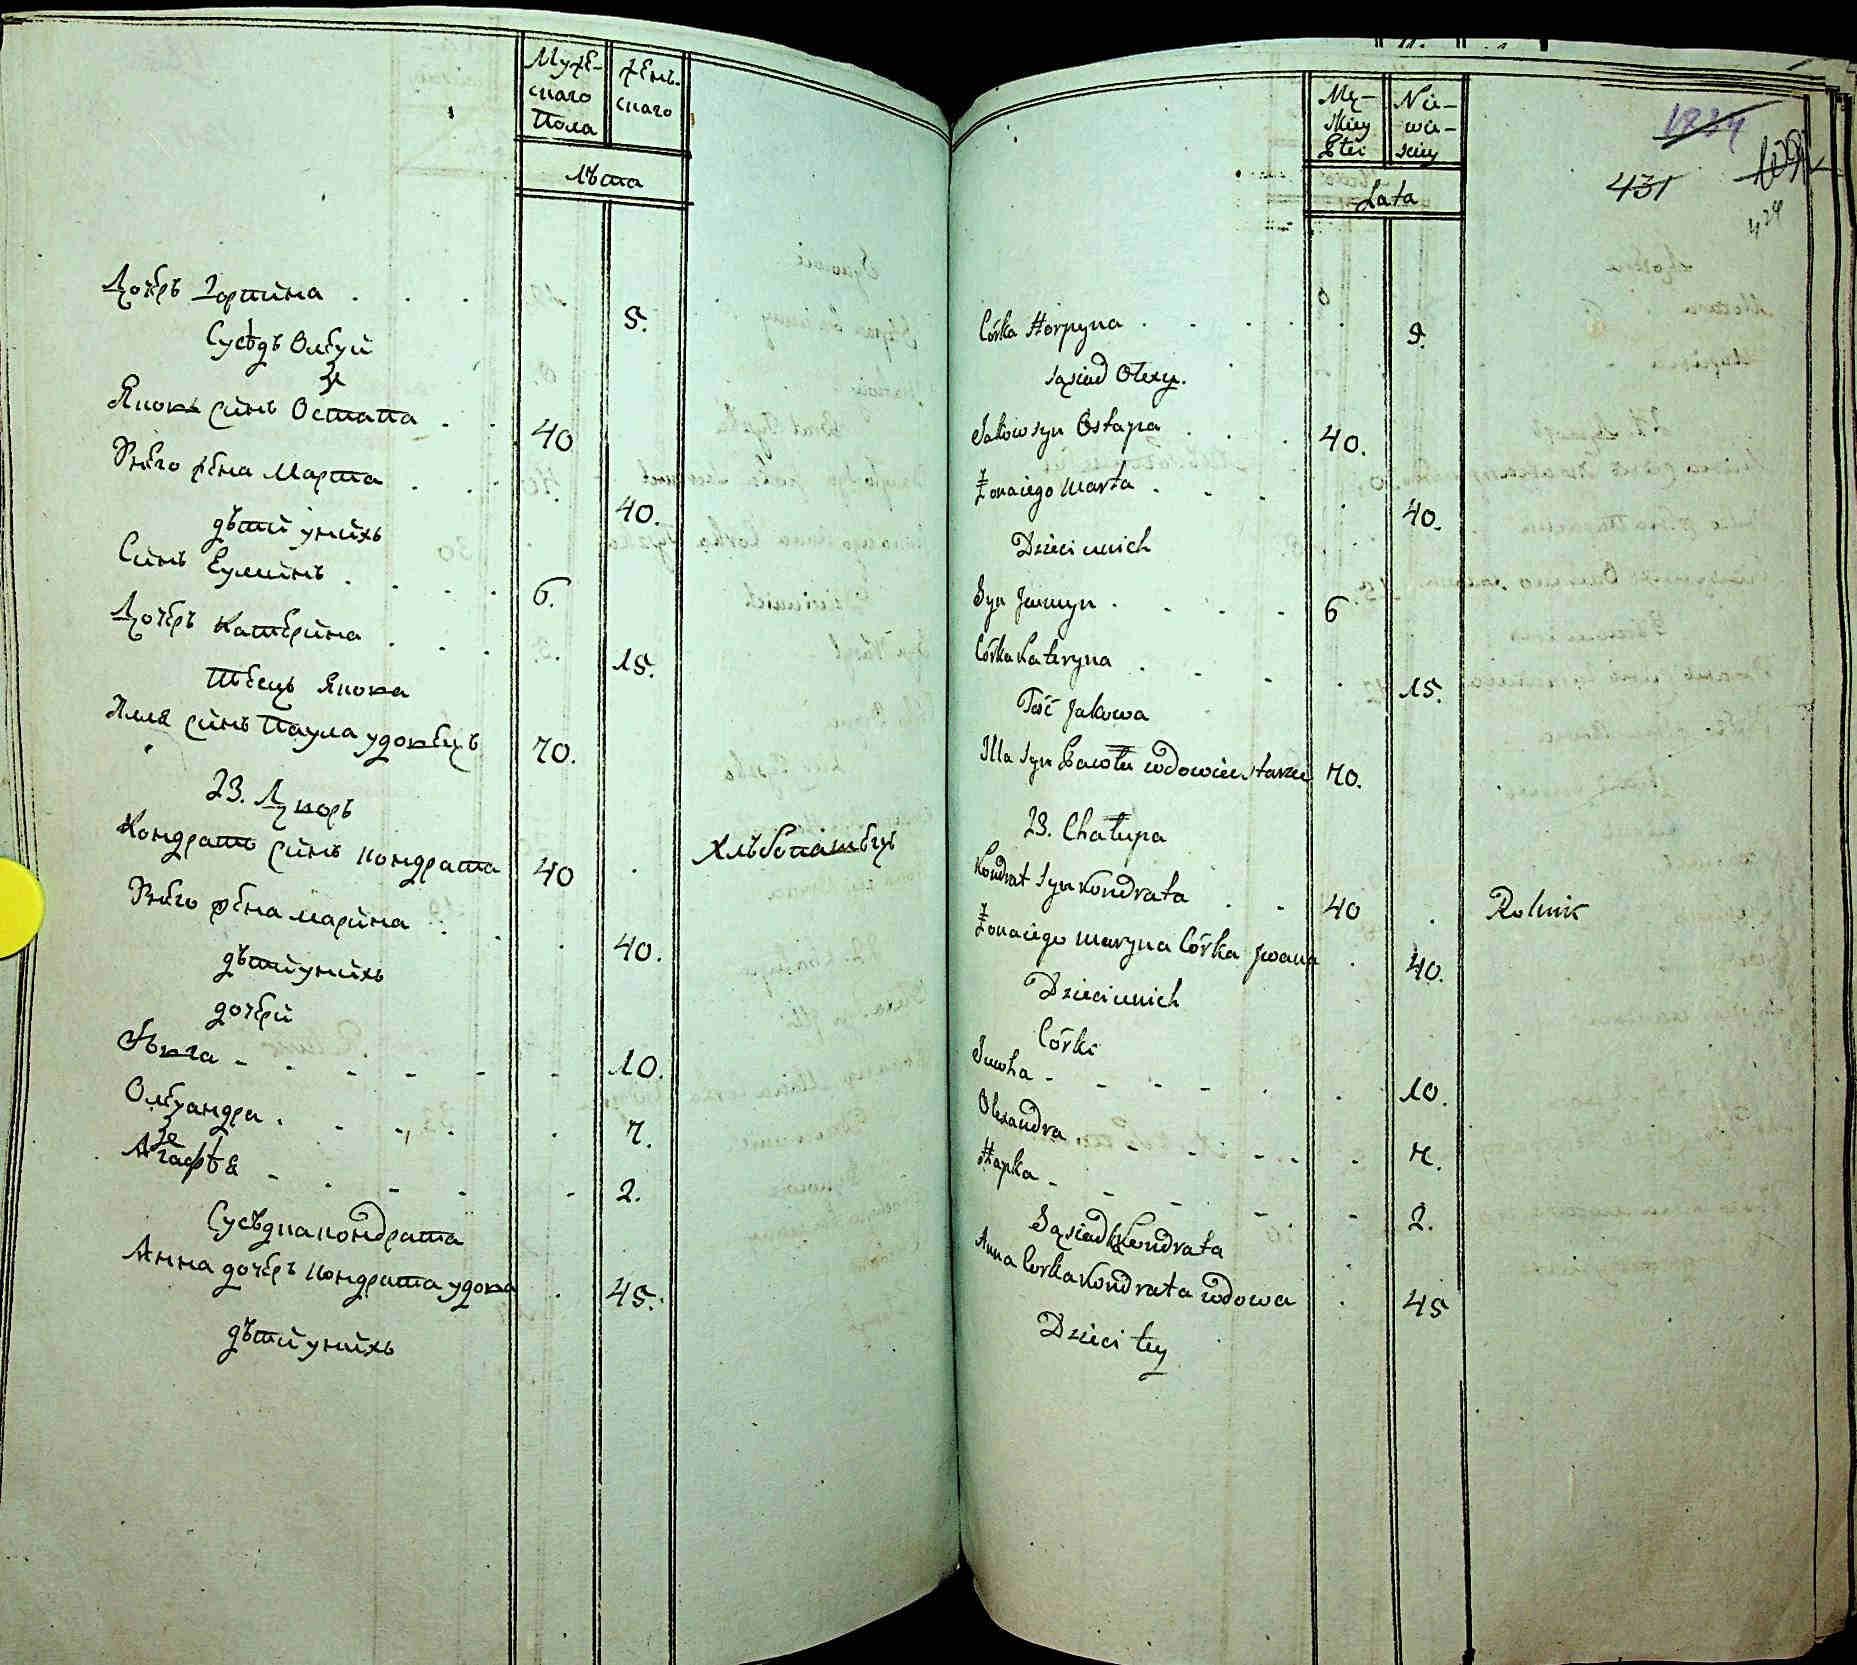 Муже-
скаго
Пола
жень-
скаго
лѣта
Дочерь Горпина . . . 5.
Сусѣдъ Олеѯуй
Яковъ синъ Остапа . . 40
Унего жена Марта . . . 40.
дѣти унихъ
Синъ Еуминъ . . . . 6.
Дочерь Катерина . . . 15.
Тѣсць Якова
Илля синъ Паула удовець 70.
23. Двор
Кондратъ синъ Кондрата 40 . Хлѣбопашець
Унего жена марина . . . 40.
дѣти унихъ
дочери
Ѣвга - - - - - - 10.
Олеѯандра . - - . . 7.
Агафѣя - - - - - 2.
Сусѣдка кондрата
Анна дочерь Кондрата удова . 45.
дѣти унихъ
Mę-
skiey
Płci
Nie-
wie-
sciey
Lata
1834
431
429
Córka Horpyna . . . . . 5.
sąsiad Olexy.
Jakow syn Ostapa . . . 40.
Żona iego Marta . . . . 40.
Dzieci unich
Syn Jumyn . . . . 6
Córka Kateryna . . . . 15.
Teść Jakowa
Illa syn Pawła wdowiec starzec 70.
23. Chałupa
Kondrat syn Kondrata . . 40 . Rolnik
Żona iego maryna Córka Jwana . 40.
Dzieci unich
Córki
Juwha - - - - . . 10.
Olexandra . - - - - . 7.
Hapka - - - - - 2.
Sąsiadka Kondrata
Anna Corka Kondrata wdowa . 45
Dzieci tey